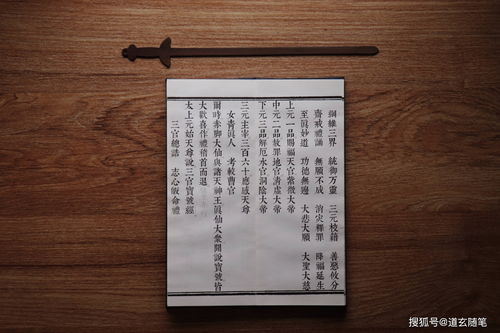 綱維三界 統御万靈 三元校籍 善惡攸分
齋戒禮誦 無願不成 消灾釋罪 降福延生
至眞妙道 功德無邊 大悲大願 大聖大慈
上元一品賜福天官紫微大帝
中元二品赦罪地官清虛大帝
下元三品解厄水官洞陰大帝
三元主宰三百六十應感天尊
女青眞人 考較曹官
爾時赤脚大仙與諸天神王眞仙大衆聞說寶號皆
大歡喜作禮稽首而退
太上元始天尊說三官寶號經
三官總誥 志心皈命禮
搜狐号@道玄随笔